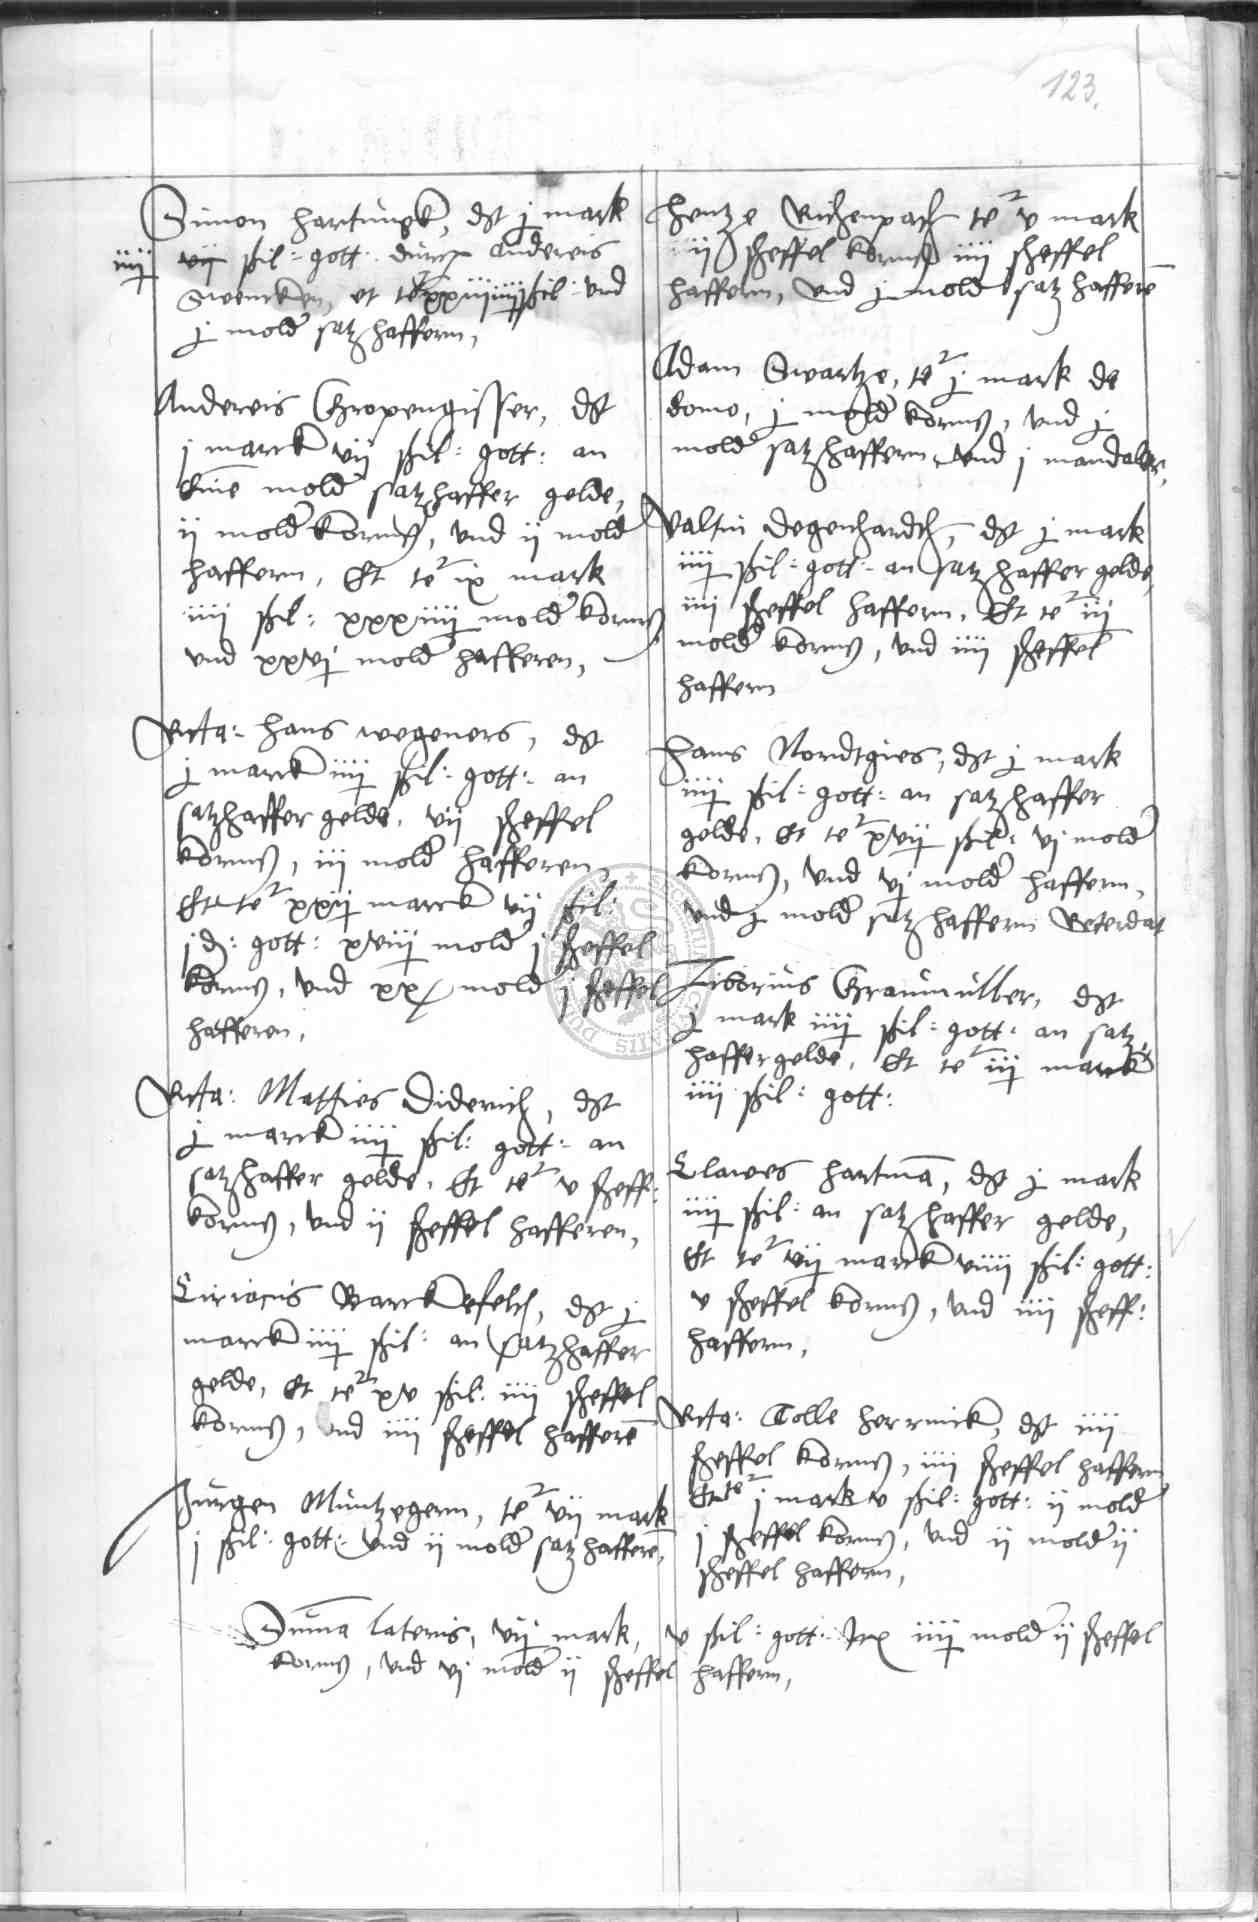 123.
Simon Hartungk, dt j mark
iiij vij ßil: gott: durch Andereis
Swencken, et te2 xxiiij ßil: vnd
j mold satzhafferm,
Andereis Gropengisser, dt
j marck vij ßil: gott: an
eine mold satzhaffer gelde,
ij mold korns, vnd ij mold
hafferm, Et te2 ix mark
iiij ßil: xxxiiij mold korns
vnd xxvj mold hafferen,
Rcta: Hans wegeners, dt
j marck iiij ßil: gott: an
satzhaffer gelde, vij scheffel
korns, iij mold hafferen
Et te2 xxij marck vij ßil:
j d: gott: xviij mold j scheffel
korns, vnd xx mold j scheffel
hafferen,
Rcta: Matties Diderich, dt
j marck iiij ßil: gott: an
satzhaffer gelde, Et te2 v scheff:
korns, vnd ij scheffel hafferen,
Ciriacus Barckefelch, dt j
marck iiij ßil: an satzhaffer
gelde, Et te2 xv ßil: iiij scheffel
korns, vnd iiij scheffel hafferē
Jurgen Muntzegerm, te2 vij mark
j ßil: gott: vnd ij mold satzhafferē,
Hentze Richenpach te2 v mark
iiij scheffel korns iiij scheffel
hafferm, vnd j mold satzhafferē
Adam Swartze, te2 j mark de
domo, j mold korns, vnd j
mold satzhafferm vnd j mandaler,
Valtin Degenhardch, dt j mark
iiij ßil: gott: an satzhaffer gelde,
iiij scheffel hafferm, Et te2 iij
mold korns, vnd iiij scheffel
hafferm
Hans Nordtgies, dt j mark
iiij ßil: gott: an satzhaffer
gelde, Et te2 xvij ßil: vj mold
korns, vnd vj mold hafferm,
vnd j mold satzhafferm
Liborius Graumuller, dt
j mark iiij ßil: gott: an satz
haffergelde, Et te2 iij marck
iiij ßil: gott:
Clawes Hartmā, dt j mark
iiij ßil: an satzhaffer gelde,
Et te2 vij marck viiij ßil: gott:
v scheffel korns, vnd iiij scheff:
hafferm,
Rcta: Tolle Herwick, dt iiij
scheffel korns, iiij scheffel hafferm
Et te2 j mark v ßil: gott: ij mold
j scheffel korns, vnd ij mold ij
scheffel hafferm,
Suma lateris, vij mark, v ßil: gott: iiij mold ij scheffel
korns, vnd vj mold ij scheffel hafferm,